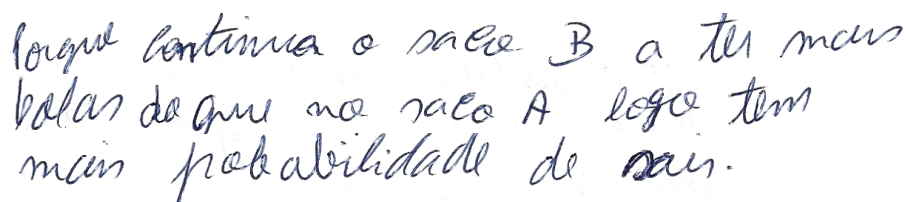 Porque continua o saco B a ter mais
bolas do que no saco A logo tem
mais probabilidade de sair.